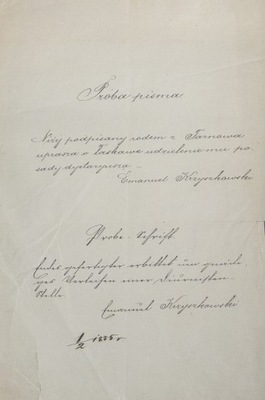 Próba pisma
Niżej podpisany rodem z Tarnowa
uprasza o łaskawe udzielenie mu po-
sady dyetaryusza
Emanuel Krzyszkowski
Probe-Schrift
Endes gefertigter erbittet um
Verleihen einer Diurnisten-
Stelle.
Emanuel Krzyszkowski